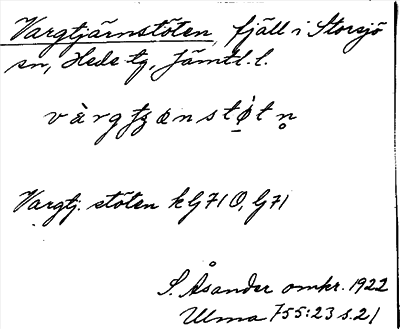 Vargtjärnstöten, fjäll i Storsjö
sn, Hede tg, Jämtl. l.
Vargtj. stöten k G71 O, G71
S. Åsander omkr. 1922
Ulma 755:23 s. 21